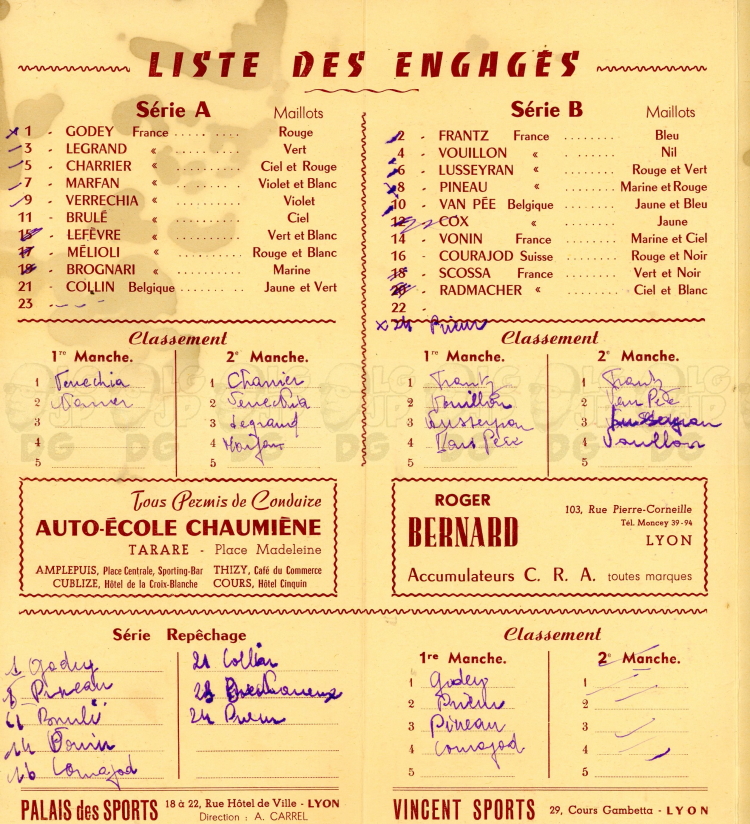 LISTE DES ENGAGÉS
Série A Maillots
1 - GODEY France . . . . . . . . . . Rouge
3 - LEGRAND « . . . . . . . . . Vert
5 - CHARRIER « . . . . . . . . . Ciel et Rouge
7 - MARFAN « . . . . . . . . . Violet et Blanc
9 - VERRECHIA « . . . . . . . . . Violet
11 - BRULÉ « . . . . . . . . . Ciel
15 - LEFÈVRE « . . . . . . . . . Vert et Blanc
17 - MÉLIOLI « . . . . . . . . . Rouge et Blanc
19 - BROGNARI « . . . . . . . . . Marine
21 - COLLIN Belgique . . . . . . . . . Jaune et Vert
23 -
Série B Maillots
2 - FRANTZ France . . . . . . . . Bleu
4 - VOUILLON « . . . . . . . . Nil
6 - LUSSEYRAN « . . . . . . . . Rouge et Vert
8 - PINEAU « . . . . . . . . Marine et Rouge
10 - VAN PÉE Belgique . . . . . . . . Jaune et Bleu
12 - COX « . . . . . . . . Jaune
14 - VONIN France . . . . . . . . Marine et Ciel
16 - COURAJOD Suisse . . . . . . . . Rouge et Noir
18 - SCOSSA France . . . . . . . . Vert et Noir
20 - RADMACHER « . . . . . . . . Ciel et Blanc
22 -
x 24 Prieur
Classement
1re Manche.
1 Verrechia
2
3
4
5
2e Manche.
1 Charrier
2 Verrechia
3 Legrand
4 Marfan
5
Classement
1re Manche.
1 Frantz
2 Vouillon
3 Lusseyran
4 Van Pée
5
2e Manche.
1 Frantz
2 Van Pée
3 Lusseyran
4 Vouillon
5
Tous Permis de Conduire
AUTO-ÉCOLE CHAUMIÈNE
TARARE - Place Madeleine
AMPLEPUIS, Place Centrale, Sporting-Bar THIZY, Café du Commerce
CUBLIZE, Hôtel de la Croix-Blanche COURS, Hôtel Cinquin
ROGER
BERNARD
103, Rue Pierre-Corneille
Tél. Moncey 39-94
LYON
Accumulateurs C. R. A. toutes marques
Série Repêchage
1 Godey
8 Pineau
11 Brulé
14 Vonin
16 Courajod
21 Collin
24 Prieur
Classement
1re Manche.
1 Godey
2 Prieur
3 Pineau
4 Courajod
5
2e Manche.
1
2
3
4
5
PALAIS des SPORTS 18 à 22, Rue Hôtel de Ville - LYON
Direction : A. CARREL
VINCENT SPORTS 29, Cours Gambetta - LYON